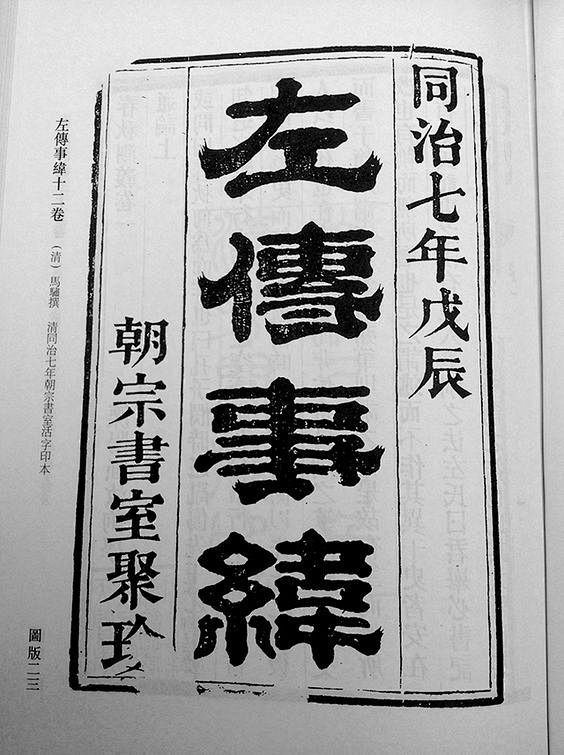 同治七年戊辰
左傳事緯
朝宗書室聚珍
左傳事緯十二卷 （清）馬驌撰 清同治七年朝宗書室活字印本
圖版二三